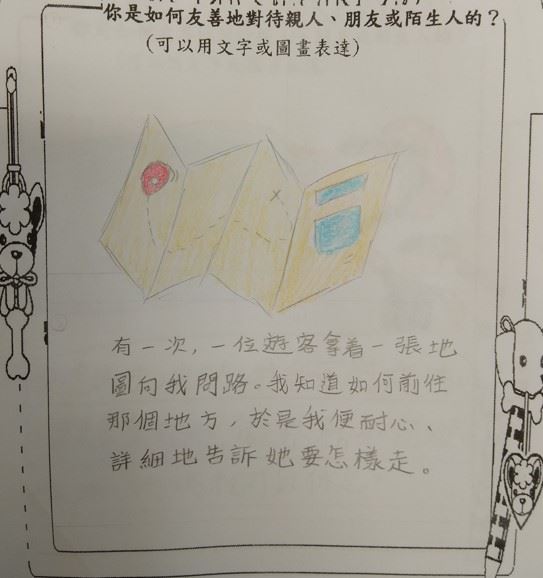 你是如何友善地對待親人、朋友或陌生人的？
(可以用文字或圖畫表達)
有一次，一位遊客拿着一張地
圖向我問路。我知道如何前往
那個地方，於是我便耐心、
詳細地告訴她要怎樣走。